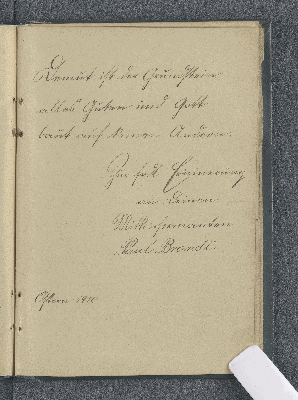 Demut ist der Grundstein
alles Guten und Gott
baut auf keinen Andern.
Zur frdl. Erinnerung
an deinen
Mitkonfirmanden
Brandl.
Ostern 1910